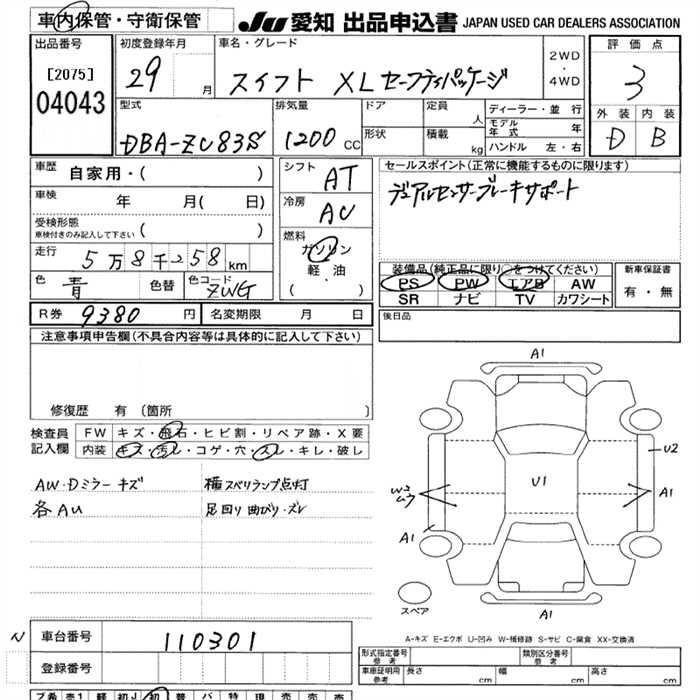 車内保管・守衛保管
JU 愛知 出品申込書 JAPAN USED CAR DEALERS ASSOCIATION
出品番号
[2075]
04043
初度登録年月
29 月
車名・グレード
スイフト XLセーフティパッケージ
2WD
・
4WD
評価点
3
外装 内装
D B
型式
DBA-ZC83S
排気量
1200 CC
ドア
形状
定員 人
積載 kg
ディーラー・並行
モデル年式 年
ハンドル 左・右
車歴 自家用・( )
車検 年 月( 日)
受検形態
車検付きのみ記入して下さい ( )
走行 5万8千258km
色 青 色替 色コード ZWG
シフト AT
冷房 AC
燃料
ガソリン
軽油
・
( )
セールスポイント(正常に機能するものに限ります)
デュアルセンサーブレーキサポート
装備品(純正品に限り○をつけてください)
PS PW エアB AW
SR ナビ TV カワシート
新車保証書
有・無
R券 9380 円 名変期限 月 日
後日品
注意事項申告欄(不具合内容等は具体的に記入して下さい)
修復歴 有 〔箇所 〕
検査員記入欄
FW キズ・飛石・ヒビ割・リペア跡・X要
内装 キズ・汚レ・コゲ・穴・スレ・キレ・破レ
AW・Dミラーキズ
各AU
横スベリランプ点灯
足回り曲がり・ズレ
A1
U2
U1
W3
A1
A1
スペア
A1
A-キズ E-エクボ U-凹み W-補修跡 S-サビ C-腐食 XX-交換済
N
車台番号 110301
登録番号
形式指定番号
参考
類別区分番号
参考
車庫証明用
参考
長さ cm 幅 cm 高さ cm